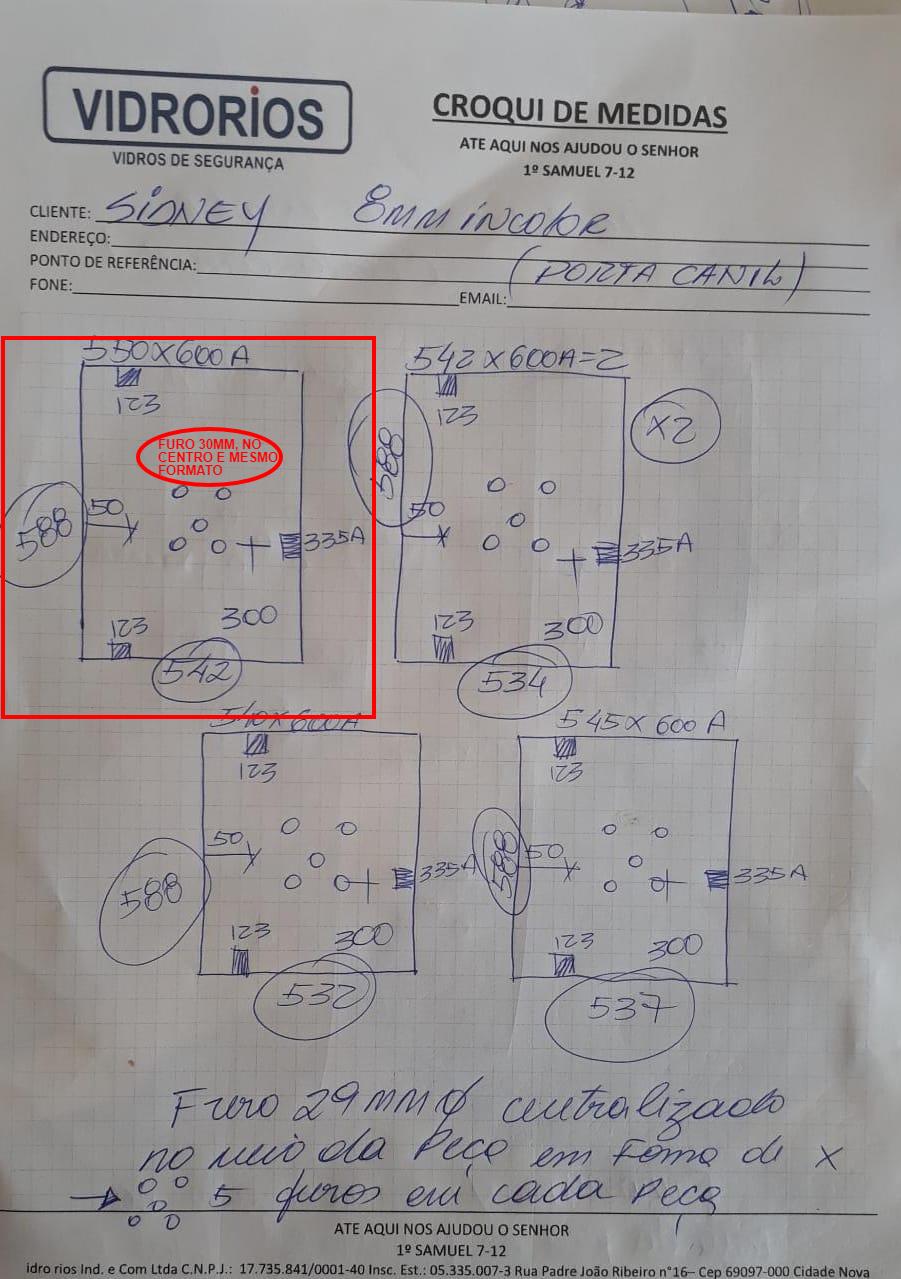 VIDRORIOS
VIDROS DE SEGURANÇA
CROQUI DE MEDIDAS
ATE AQUI NOS AJUDOU O SENHOR
1º SAMUEL 7-12
CLIENTE: SIDNEY 8MM INCOLOR
ENDEREÇO:
PONTO DE REFERÊNCIA: (PORTA CANIL)
FONE: EMAIL:
550X600A
123
FURO 30MM, NO
CENTRO E MESMO
FORMATO
50
588
335A
123
300
542
542X600A=2
123
X2
588
50
335A
123
300
534
540X600A
123
50
335A
588
123
300
532
545X600A
123
588
50
335A
123
300
537
Furo 29MMØ centralizado
no meio da Peça em Foma de X
5 furos em cada Peça
ATE AQUI NOS AJUDOU O SENHOR
1º SAMUEL 7-12
idro rios Ind. e Com Ltda C.N.P.J.: 17.735.841/0001-40 Insc. Est.: 05.335.007-3 Rua Padre João Ribeiro n°16– Cep 69097-000 Cidade Nova